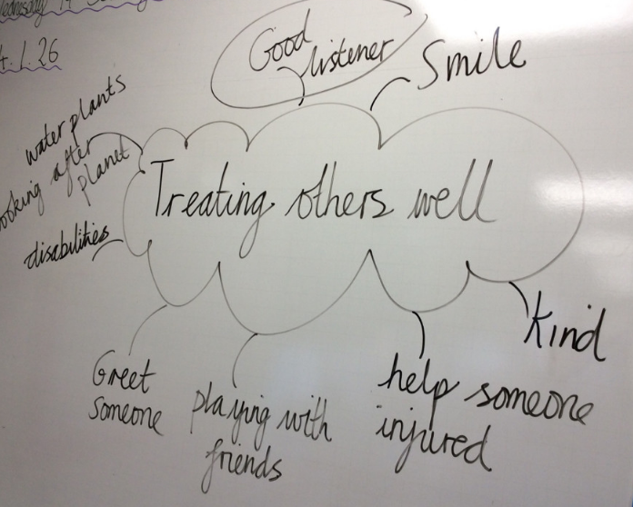 Wednesday 14
L.26
Good
listener
Smile
water plants
looking after
planet
disabilities
Treating others well
Kind
Greet
someone
playing with
friends
help someone
injured